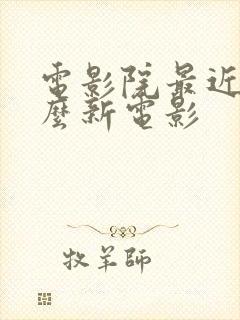 電影院最近
麼新電影
牧羊師